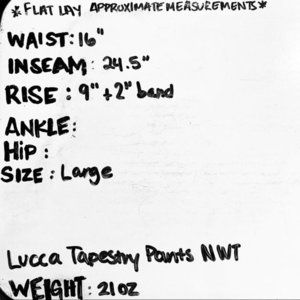 *FLAT LAY APPROXIMATE MEASUREMENTS*
WAIST: 16"
INSEAM: 24.5"
RISE: 9" + 2" band
ANKLE:
Hip:
SIZE: Large
Lucca Tapestry Pants NWT
WEIGHT: 21 OZ